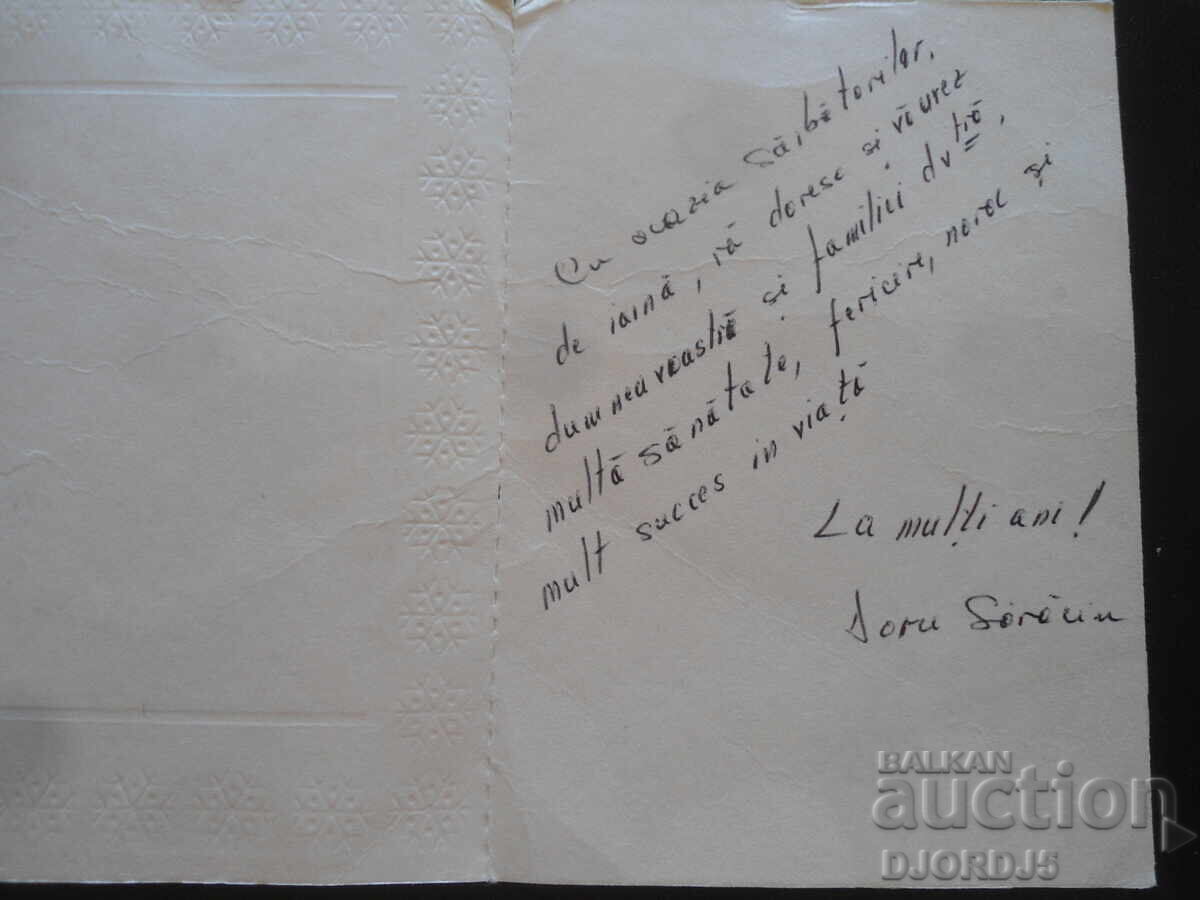 Cu ocazia Sărbătorilor,
de iarnă, vă doresc și vă urez
dumneavoastră și familiei dv tră,
multă sănătate, fericire, noroc și
mult succes in viață
La mulți ani!
Doru
BALKAN
auction
DJORDJ5